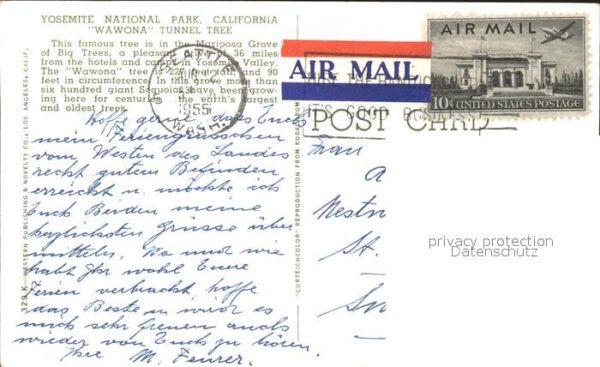 YOSEMITE NATIONAL PARK, CALIFORNIA
"WAWONA" TUNNEL TREE
This famous tree is in the Mariposa Grove
of Big Trees, a pleasant drive of 36 miles
from the hotels and camps in Yosemite Valley.
The "Wawona" tree is 227 feet tall, and 90
feet in circumference. In this grove more than
six hundred giant Sequoias have been grow-
ing here for centuries, the earth's largest
and oldest trees.
SEATTLE
1955
WASH.
AIR MAIL
AIR MAIL
10¢ UNITED STATES POSTAGE
IT'S GOOD BUSINESS
POST CARD
Hoffe gerne, dass Euch
meine Feriengrüsschen
vom Westen des Landes
recht gutem Befinden
erreicht u. möchte ich
Euch Beiden meine
herzlichsten Grüsse über
mitteln. Wo und wie
habt Ihr wohl Eure
Ferien verbracht, hoffe
das Beste u. wird es
mich sehr freuen auch
wieder von Euch zu hören.
Ihre M. Feurer.
Frau
A
Nestn
St.
329 K—WESTERN PUBLISHING & NOVELTY CO., LOS ANGELES, CALIF.
"CURTEICHCOLOR" REPRODUCTION FROM KODACHROME
privacy protection
Datenschutz